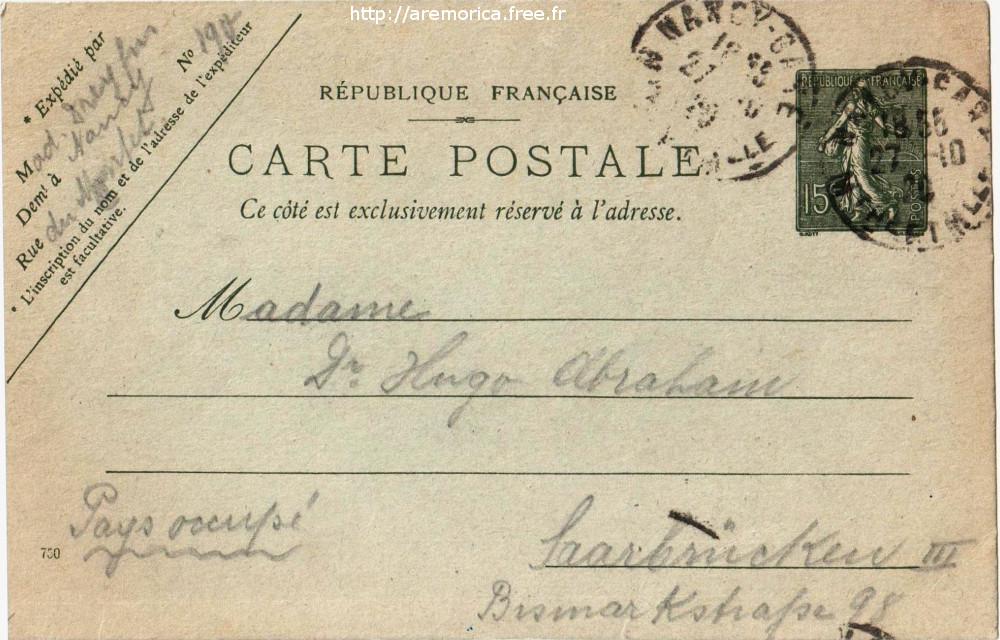 http://aremorica.free.fr
* Expédié par
Mad. Dreyfus
Demt à Nancy
Rue du Montet No
* L'inscription du nom et de l'adresse de l'expéditeur
est facultative.
RÉPUBLIQUE FRANÇAISE
CARTE POSTALE
Ce côté est exclusivement réservé à l'adresse.
NANCY-GARE
RÉPUBLIQUE FRANÇAISE
15
POSTES
Madame
Dr. Hugo Abraham
Pays occupé
Saarbrücken III
Bismarkstraße 98